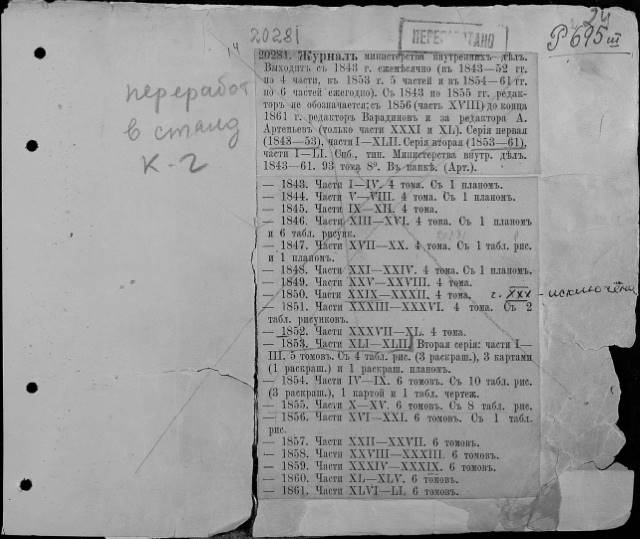 20281
14
ПЕРЕРАБОТАНО
24
P 695 III
переработ
в станд
К-2
20281. Журналъ министерства внутреннихъ дѣлъ.
Выходитъ съ 1843 г. ежемѣсячно (въ 1843—52 гг.
по 4 части, въ 1853 г. 5 частей и въ 1854—61 гг.
по 6 частей ежегодно). Съ 1843 по 1855 гг. редак-
торъ не обозначается; съ 1856 (часть XVIII) до конца
1861 г. редакторъ Варадиновъ и за редактора А.
Артемьевъ (только части XXXI и XL). Серія первая
(1843—53), части I—XLII. Серія вторая (1853—61),
части I—LI. Спб., тип. Министерства внутр. дѣлъ.
1843—61. 93 тома 8º. Въ папкѣ. (Арт.).
— 1843. Части I—IV. 4 тома. Съ 1 планомъ.
— 1844. Части V—VIII. 4 тома. Съ 1 планомъ.
— 1845. Части IX—XII. 4 тома.
— 1846. Части XIII—XVI. 4 тома. Съ 1 планомъ
и 6 табл. рисунк.
— 1847. Части XVII—XX. 4 тома. Съ 1 табл. рис.
и 1 планомъ.
— 1848. Части XXI—XXIV. 4 тома. Съ 1 планомъ.
— 1849. Части XXV—XXVIII. 4 тома.
— 1850. Части XXIX—XXXII. 4 тома. ч. XXX - исключена
— 1851. Части XXXIII—XXXVI. 4 тома. Съ 2
табл. рисунковъ.
— 1852. Части XXXVII—XL. 4 тома.
— 1853. Части XLI—XLII. Вторая серія: части I—
III. 5 томовъ. Съ 4 табл. рис. (3 раскраш.), 3 картами
(1 раскраш.) и 1 раскраш. планомъ.
— 1854. Части IV—IX. 6 томовъ. Съ 10 табл. рис.
(3 раскраш.), 1 картой и 1 табл. чертеж.
— 1855. Части X—XV. 6 томовъ. Съ 8 табл. рис.
— 1856. Части XVI—XXI. 6 томовъ. Съ 1 табл.
рис.
— 1857. Части XXII—XXVII. 6 томовъ.
— 1858. Части XXVIII—XXXIII. 6 томовъ.
— 1859. Части XXXIV—XXXIX. 6 томовъ.
— 1860. Части XL—XLV. 6 томовъ.
— 1861. Части XLVI—LI. 6 томовъ.